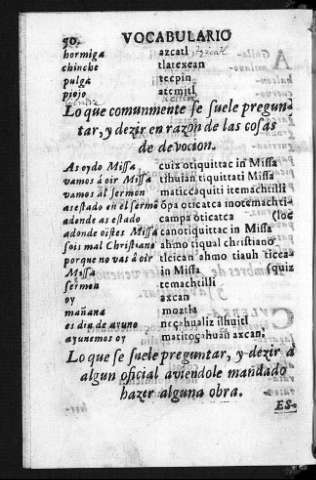 50. VOCABULARIO
hormiga azcatl
chinche tlatexcan
pulga tecpin
piojo atemitl
Lo que comunmente se suele pregun-
tar, y dezir en razon de las cosas
de devocion.
As oydo Missa cuix otiquittac in Missa
vamos à oir Missa tihuian tiquittati Missa
vamos al sermon maticcaquiti itemachtilli
as estado en el sermõ õpa oticatca inotcemachti
adonde as estado campa oticatca (loc
adonde oistes Missa canotiquittac in Missa
sois mal Christiano ahmo tiqual christiano
porque no vas à oir tleican ahmo tiauh ticca-
Missa in Missa (quiz
sermon temachtilli
oy axcan
mañana moztla
es dia de ayuno neçahualiz ilhuitl
ayunemos oy matitoçahuan axcan.
Lo que se suele preguntar, y dezir a
algun oficial aviendole mandado
hazer alguna obra.
ES-